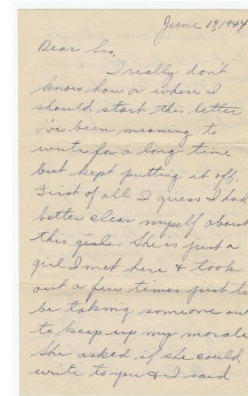 June 19, 1944
Dear Sis,
I really don't
know how or where I
should start this letter
I've been meaning to
write for a long time
but kept putting it off.
First of all I guess I had
better clear myself about
this girl. She is just a
girl I met here & took
out a few times just to
be taking someone out
to keep up my morale
She asked if she could
write to you & I said